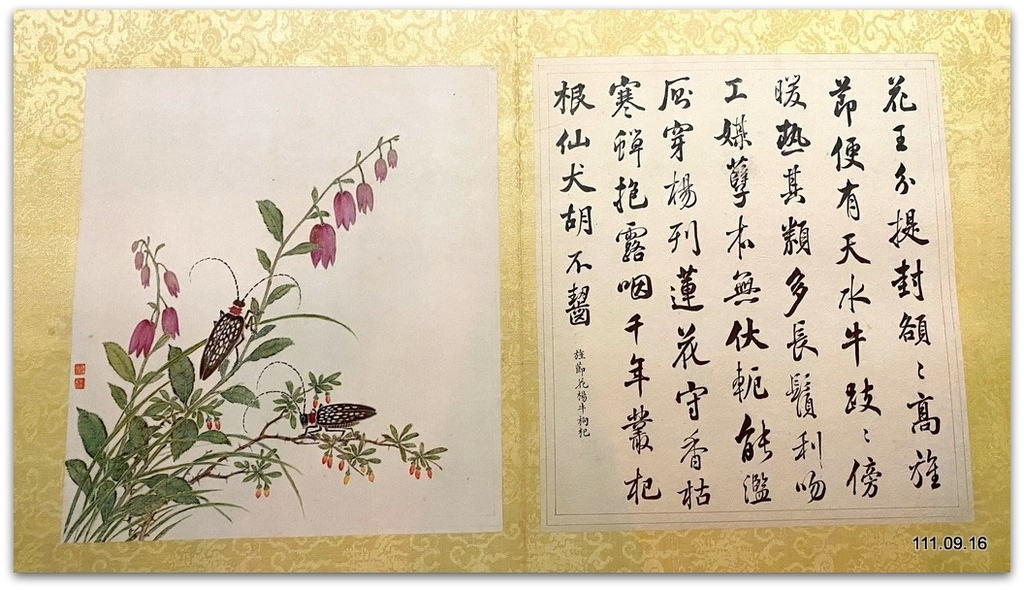 花王分提封額〻高旌
節便有天水牛跂〻傍
暖热其類多長鬚利吻
工媒孽本無伏軛能濫
厕穿楊列蓮花守香枯
寒蟬抱露咽千年叢杞
根仙犬胡不齧
旌節花楊牛枸杞
111.09.16